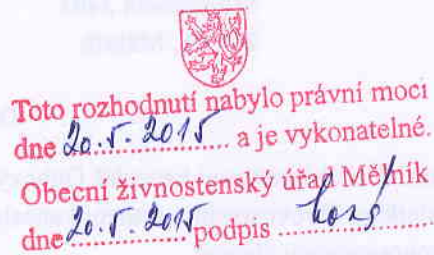 Toto rozhodnutí nabylo právní moci
dne 20.5.2015 a je vykonatelné.
Obecní živnostenský úřad Mělník
dne 20.5.2015 podpis